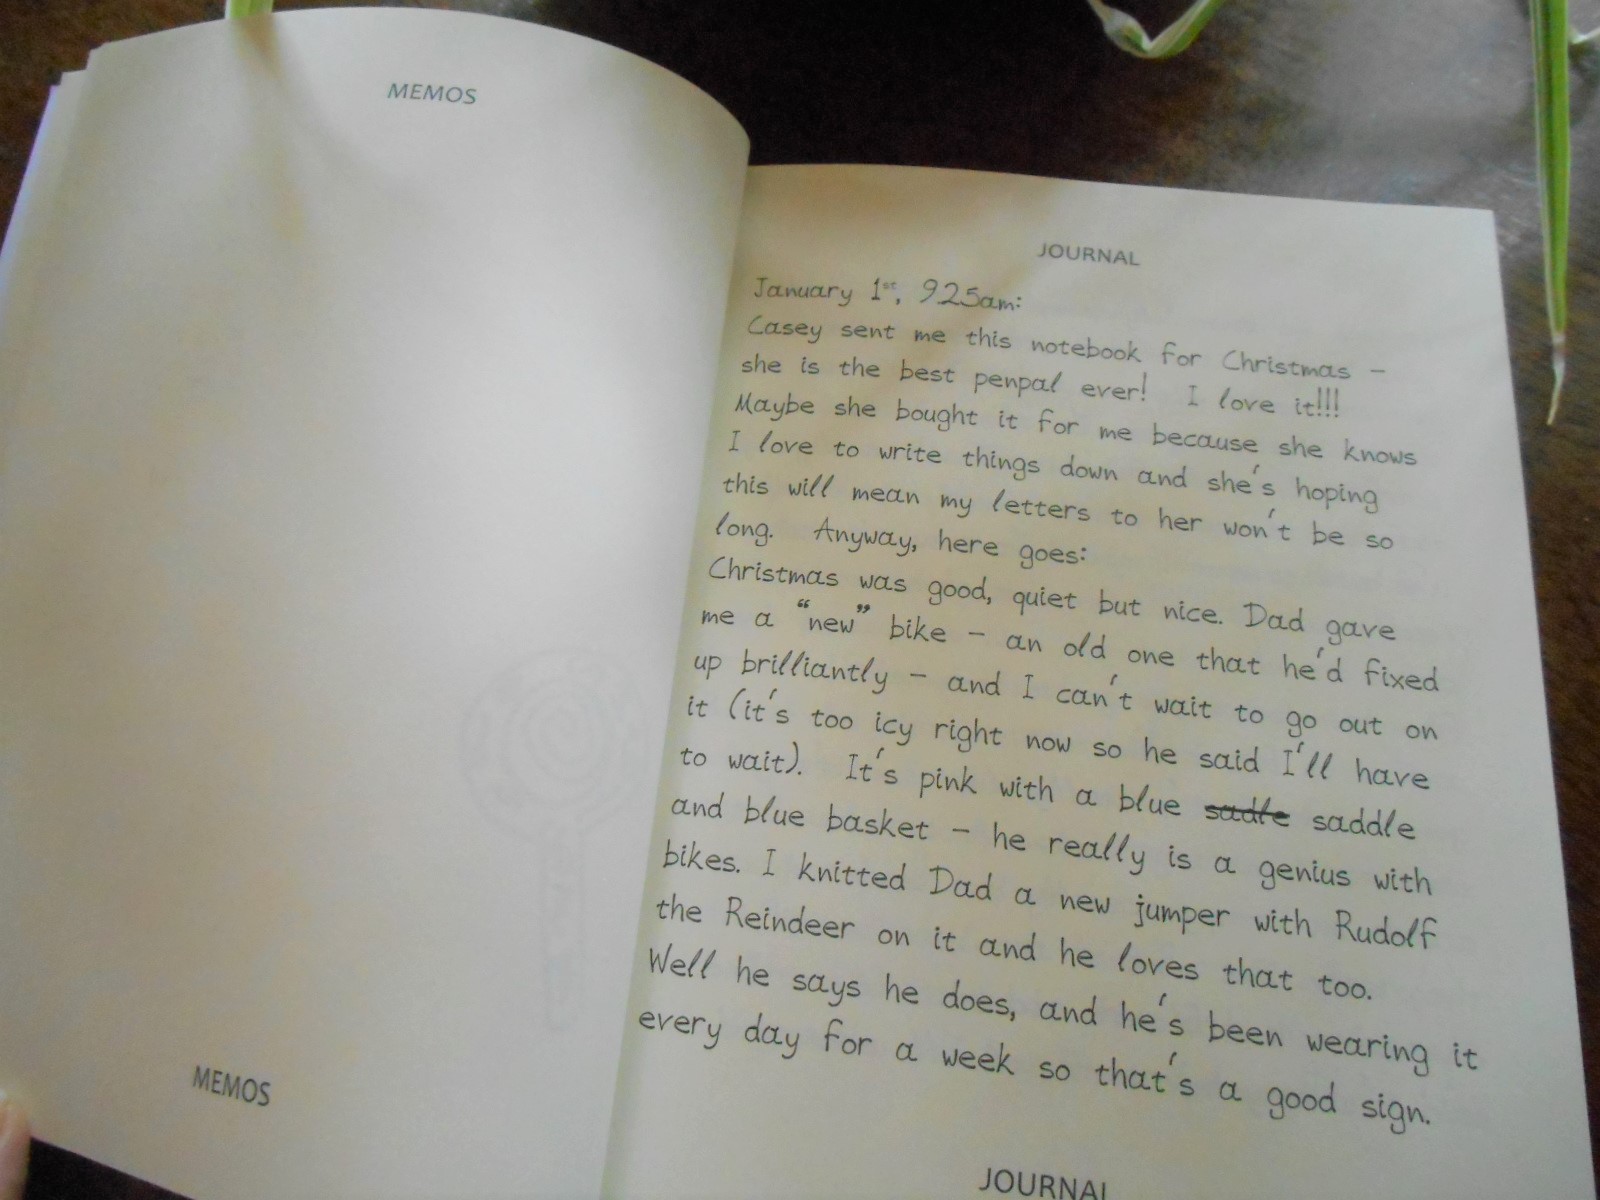 MEMOS
MEMOS
JOURNAL
January 1st, 925am:
Casey sent me this notebook for Christmas –
she is the best penpal ever! I love it!!!
Maybe she bought it for me because she knows
I love to write things down and she's hoping
this will mean my letters to her won't be so
long. Anyway, here goes:
Christmas was good, quiet but nice. Dad gave
me a “new” bike – an old one that he'd fixed
up brilliantly – and I can't wait to go out on
it (it's too icy right now so he said I'll have
to wait). It's pink with a blue sadle saddle
and blue basket – he really is a genius with
bikes. I knitted Dad a new jumper with Rudolf
the Reindeer on it and he loves that too.
Well he says he does, and he's been wearing it
every day for a week so that's a good sign.
JOURNAL